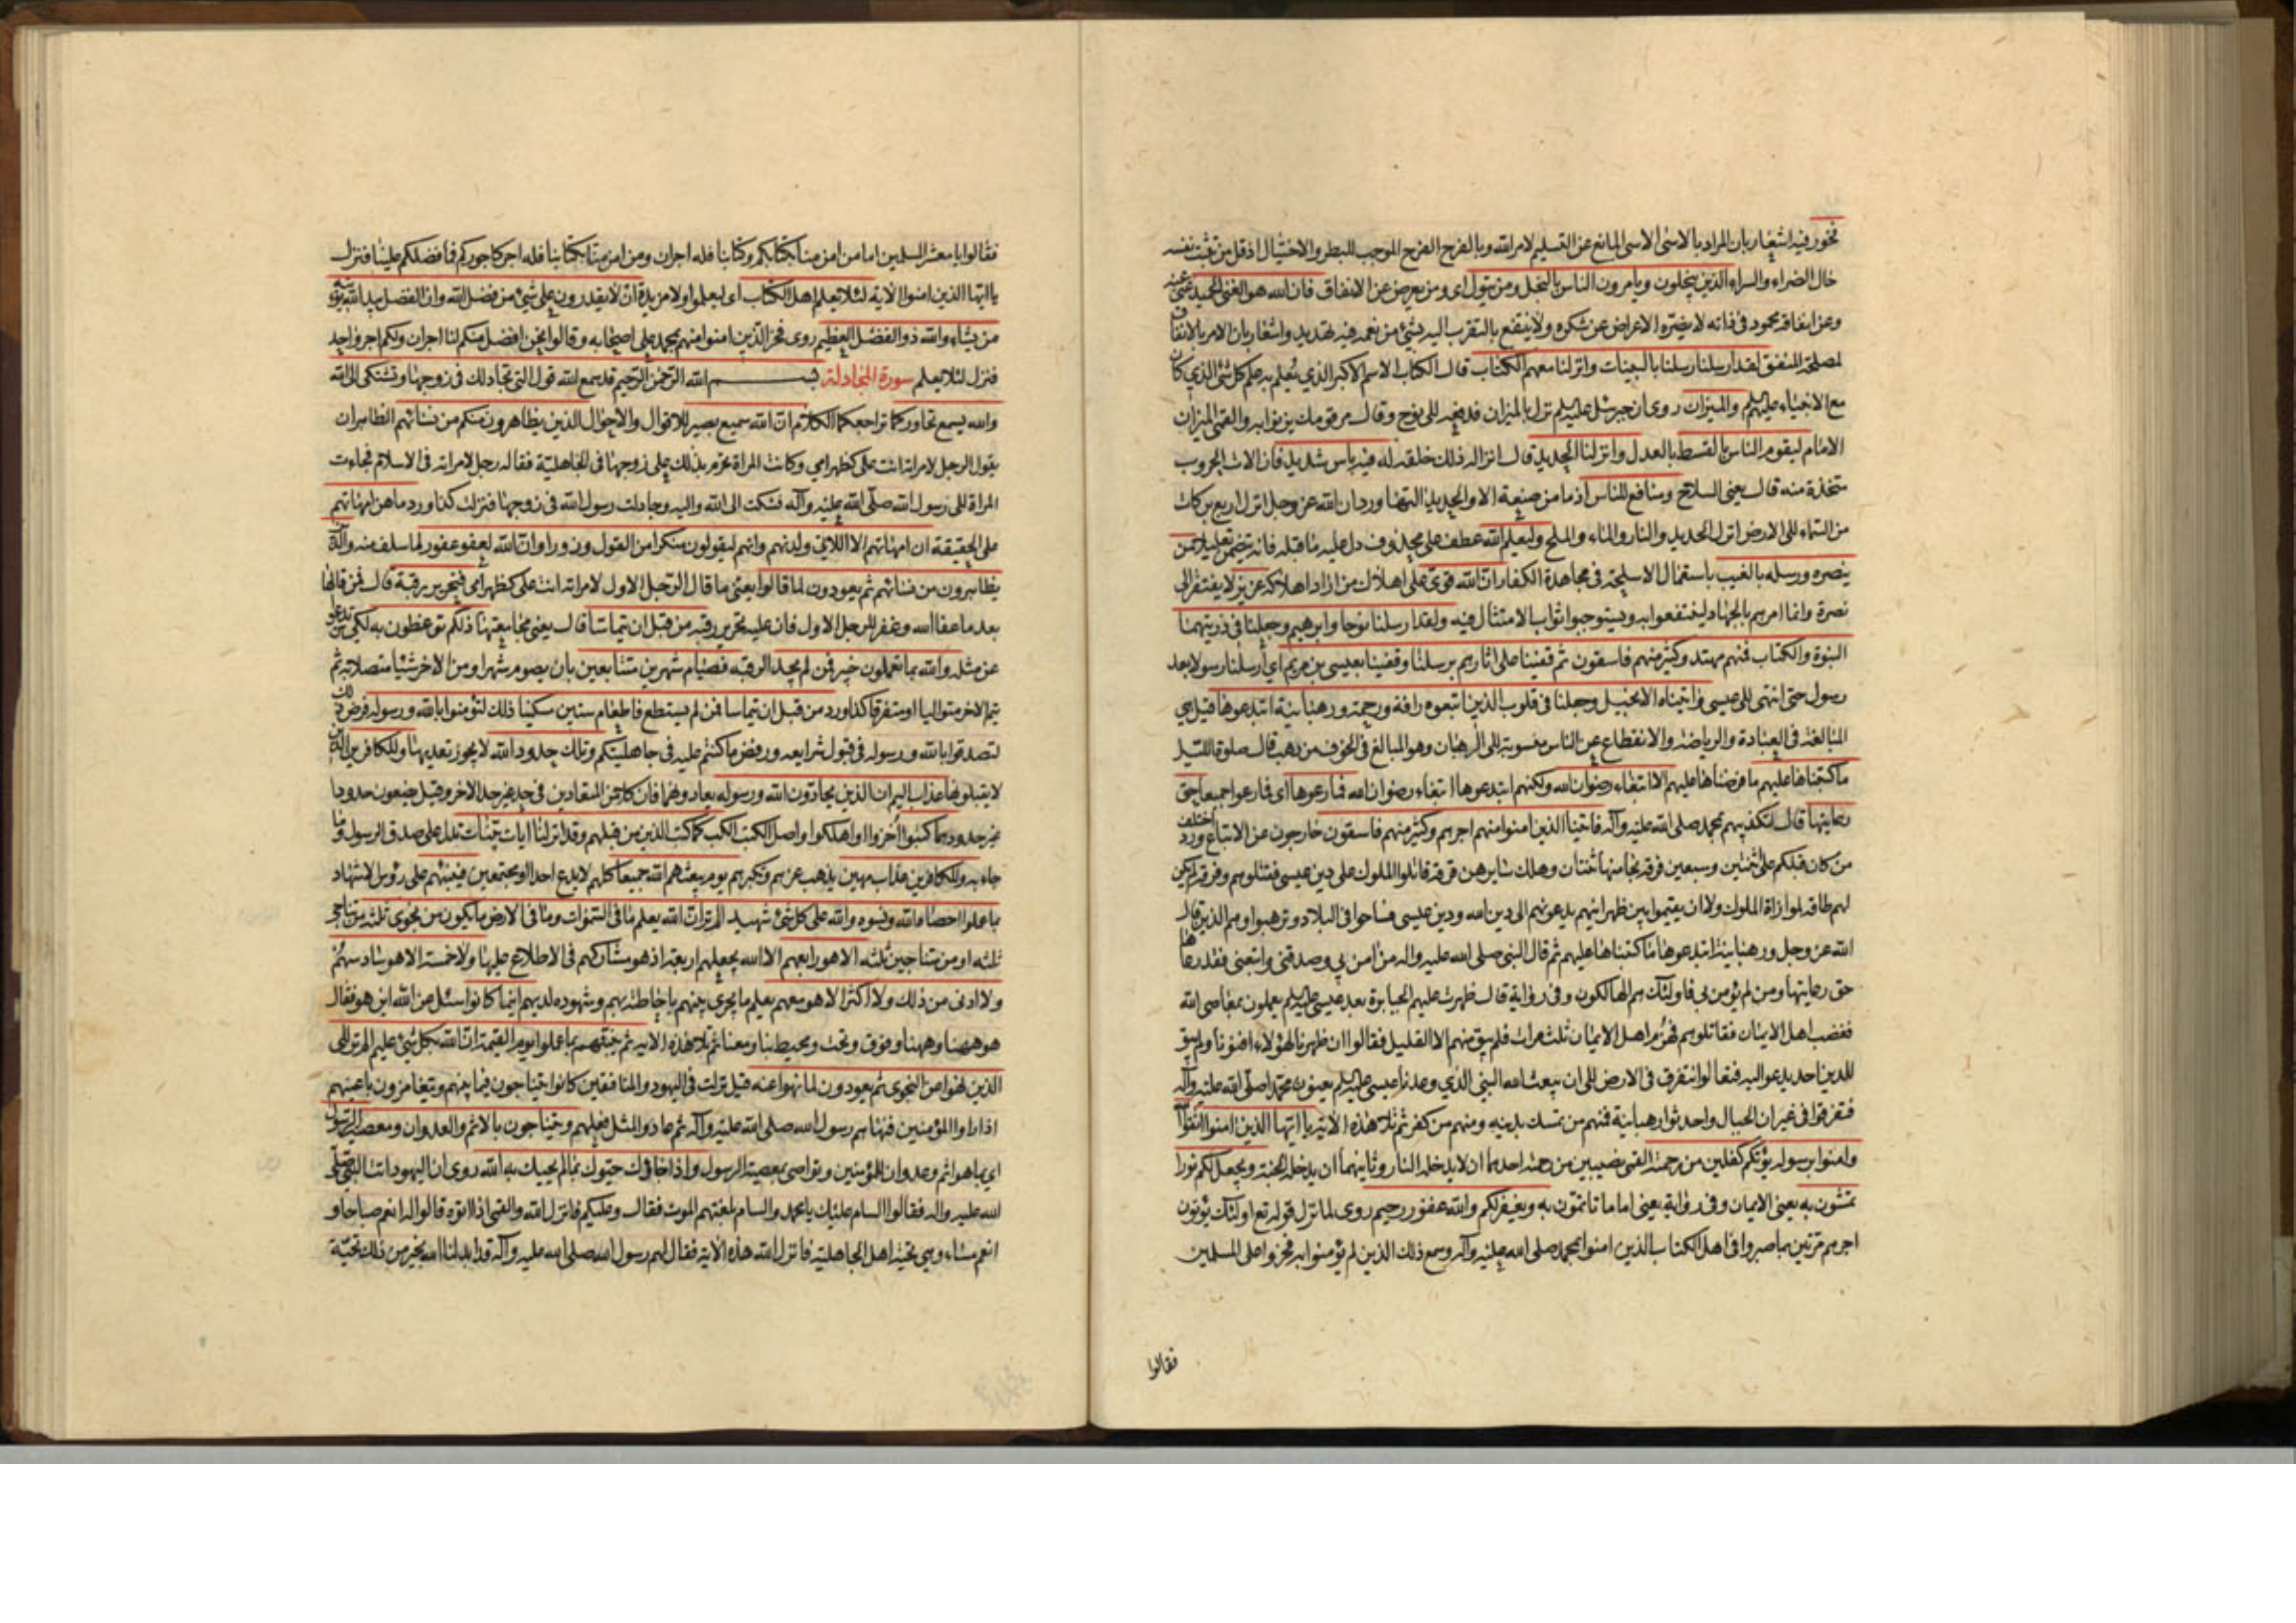 فخور فيه اشعار بان المراد بالاسى الاسى المانع عن التسليم لامر الله وبالفرح الفرح الموجب للبطر والاختيال اذ قل من يثبت نفسه
حال الضراء والسراء الذين يبخلون ويأمرون الناس بالبخل ومن يتول اى ومن يعرض عن الانفاق فان الله هو الغنى الحميد غنى عنه
وعن انفاقه محمود فى ذاته لا يضره الاعراض عن شكره ولا ينتفع بالتقرب اليه بشئ من نعمه فيه تهديد واشعار بان الامر بالانفاق
لمصلحة المنفق لقد ارسلنا رسلنا بالبينات وانزلنا معهم الكتاب قال الكتاب الاسم الاكبر الذي يعلم به علم كل شئ الذي كان
مع الانبياء عليهم والميزان روى ان جبرئيل نزل بالميزان فدفعه الى نوح وقال مر قومك يزنوا به والقمى الميزان
الامام ليقوم الناس بالقسط بالعدل وانزلنا الحديد قال انزاله ذلك خلقه له فيه بأس شديد فان الات الحروب
متخذة منه قال يعنى السلاح ومنافع للناس اذ ما من صنعة الا والحديد التها ورد ان الله عز وجل انزل اربع بركات
من السماء الى الارض انزل الحديد والنار والماء والملح وليعلم الله عطف على محذوف دل عليه ما قبله فانه يتضمن تعليلا من
ينصره ورسله بالغيب باستعمال الاسلحة فى مجاهدة الكفار ان الله قوى على اهلاك من اراد اهلاكه عزيز لا يفتقر الى
نصرة وانما امرهم بالجهاد لينتفعوا به ويستوجبوا ثواب الامتثال فيه ولقد ارسلنا نوحا وابرهيم وجعلنا فى ذريتهما
النبوة والكتاب فمنهم مهتد وكثير منهم فاسقون ثم قفينا على اثارهم برسلنا وقفينا بعيسى بن مريم اي ارسلنا رسولا بعد
رسول حتى انتهى الى عيسى واتيناه الانجيل وجعلنا فى قلوب الذين اتبعوه رافة ورحمة ورهبانية ابتدعوها قيل هي
المبالغة فى العبادة والرياضة والانقطاع عن الناس منسوبة الى الرهبان وهو المبالغ فى الخوف من رهب قال صلوة الليل
ما كتبناها عليهم ما فرضناها عليهم الا ابتغاء رضوان الله ولكنهم ابتدعوها ابتغاء رضوان الله فما رعوها اى فما رعوا جميعا حق
رعايتها قال لتكذيبهم بمحمد صلى الله عليه وآله فاتينا الذين امنوا منهم اجرهم وكثير منهم فاسقون خارجون عن الاتباع ورد اختلف
من كان قبلكم على ثنتين وسبعين فرقة نجا منها ثنتان وهلك سايرهن فرقة قاتلوا الملوك على دين عيسى فقتلوهم وفرقة لم يكن
لهم طاقة لموازاة الملوك ولا ان يقيموا بين ظهرانيهم يدعونهم الى دين الله ودين عيسى فساحوا فى البلاد وترهبوا وهم الذين قال
الله عز وجل ورهبانية ابتدعوها ما كتبناها عليهم ثم قال النبى صلى الله عليه واله من امن بي وصدقنى واتبعنى فقد رعاها
حق رعايتها ومن لم يؤمن بى فاولئك هم الهالكون وفى رواية قال ظهرت عليهم الجبابرة بعد عيسى يعملون بمعاصى الله
فغضب اهل الايمان فقاتلوهم فهزم اهل الايمان ثلث مرات فلم يبق منهم الا القليل فقالوا ان ظهرنا لهؤلاء افنونا ولم يبق
للدين احد يدعو اليه فتعالوا نتفرق فى الارض الى ان يبعث الله النبى الذي وعدنا عيسى يعنون محمدا صلى الله عليه وآله
فتفرقوا فى غيران الجبال واحدثوا رهبانية فمنهم من تمسك بدينه ومنهم من كفر ثم تلا هذه الاية يا ايها الذين امنوا اتقوا الله
وامنوا برسوله يؤتكم كفلين من رحمته القمى نصيبين من رحمته احدهما ان لا يدخله النار وثانيهما ان يدخله الجنة ويجعل لكم نورا
تمشون به يعنى الايمان وفى رواية يعنى اماما تأتمون به ويغفر لكم والله غفور رحيم روى لما نزل قوله تع اولئك يؤتون
اجرهم مرتين بما صبروا فى اهل الكتاب الذين امنوا بمحمد صلى الله عليه وآله وسمع ذلك الذين لم يؤمنوا به فخروا على المسلمين
فقالوا
فقالوا يا معشر المسلمين اما من امن منا بكتابكم وكتابنا فله اجران ومن امن منا بكتابنا فله اجر كاجوركم فما فضلكم علينا فنزل
يا ايها الذين امنوا الاية لئلا يعلم اهل الكتاب اى ليعلموا ولا مزيدة ان لا يقدرون على شئ من فضل الله وان الفضل بيد الله يؤتيه
من يشاء والله ذو الفضل العظيم روى فخر الذين امنوا منهم بمحمد على اصحابه وقالوا نحن افضل منكم لنا اجران ولكم اجر واحد
فنزل لئلا يعلم سورة المجادلة بسم الله الرحمن الرحيم قد سمع الله قول التى تجادلك فى زوجها وتشتكى الى الله
والله يسمع تحاوركما تراجعكما الكلام ان الله سميع بصير للاقوال والاحوال الذين يظاهرون منكم من نسائهم الظاهر ان
يقول الرجل لامراته انت على كظهر امى وكانت المراة تحرم بذلك على زوجها فى الجاهلية فقاله رجل لامراته فى الاسلام فجاءت
المراة الى رسول الله صلى الله عليه وآله فشكت الى الله واليه وجادلت رسول الله فى زوجها فنزلت كذا ورد ما هن امهاتهم
على الحقيقة ان امهاتهم الا اللائى ولدنهم وانهم ليقولون منكرا من القول وزورا وان الله لعفو غفور لما سلف منه والذين
يظاهرون من نسائهم ثم يعودون لما قالوا يعنى ما قال الرجل الاول لامراته انت على كظهر امى فتحرير رقبة قال فمن قالها
بعد ما عفا الله وغفر للرجل الاول فان عليه تحرير رقبة من قبل ان يتماسا قال يعنى مجامعتها ذلكم توعظون به لكى ترتدعوا
عن مثله والله بما تعملون خبير فمن لم يجد الرقبة فصيام شهرين متتابعين بان يصوم شهرا ومن الاخر شيئا متصلا به ثم
يتم الاخر متواليا او متفرقا كذا ورد من قبل ان يتماسا فمن لم يستطع فاطعام ستين مسكينا ذلك لتؤمنوا بالله ورسوله فرض ذلك
لتصدقوا بالله ورسوله فى قبول شرايعه ورفض ما كنتم عليه فى جاهليتكم وتلك حدود الله لا يجوز تعديها وللكافرين الذين
لا يقبلونها عذاب اليم ان الذين يحادون الله ورسوله يعادونهما فان كلا من المتعادين فى حد غير حد الاخر وقيل يضعون حدودا
غير حدودهما كبتوا اخزوا او اهلكوا واصل الكبت الكب كما كبت الذين من قبلهم وقد انزلنا ايات بينات تدل على صدق الرسول وما
جاء به وللكافرين عذاب مهين يذهب عزهم وتكبرهم يوم يبعثهم الله جميعا كلهم لا يدع احدا او مجتمعين فينبئهم على رؤس الاشهاد
بما عملوا احصاه الله ونسوه والله على كل شئ شهيد الم تر ان الله يعلم ما فى السموات وما فى الارض ما يكون من نجوى ثلثة من تناجى
ثلثة او من متناجين ثلثة الا هو رابعهم الا الله يجعلهم اربعة اذ هو مشاركهم فى الاطلاع عليها ولا خمسة الا هو سادسهم
ولا ادنى من ذلك ولا اكثر الا هو معهم يعلم ما يجرى بينهم باحاطته بهم وشهوده لديهم اينما كانوا سئل عن الله اين هو فقال
هو ههنا وههنا وفوق وتحت ومحيط بنا ومعنا ثم تلا هذه الاية ثم ينبئهم بما عملوا يوم القيمة ان الله بكل شئ عليم الم تر الى
الذين نهوا عن النجوى ثم يعودون لما نهوا عنه قيل نزلت فى اليهود والمنافقين كانوا يتناجون فيما بينهم ويتغامزون باعينهم
اذا راوا المؤمنين فنهاهم رسول الله صلى الله عليه وآله ثم عادوا لمثل فعلهم ويتناجون بالاثم والعدوان ومعصيت الرسول
اى بما هو اثم وعدوان للمؤمنين وتواصى بمعصية الرسول واذا جاؤك حيوك بما لم يحيك به الله روى ان اليهود اتت النبى صلى
الله عليه واله فقالوا السام عليك يا محمد والسام بلغتهم الموت فقال وعليكم فانزل الله والقمى اذا اتوه قالوا له انعم صباحا و
انعم مساء وهي تحية اهل الجاهلية فانزل الله هذه الاية فقال لهم رسول الله صلى الله عليه وآله قد ابدلنا الله بخير من ذلك تحية